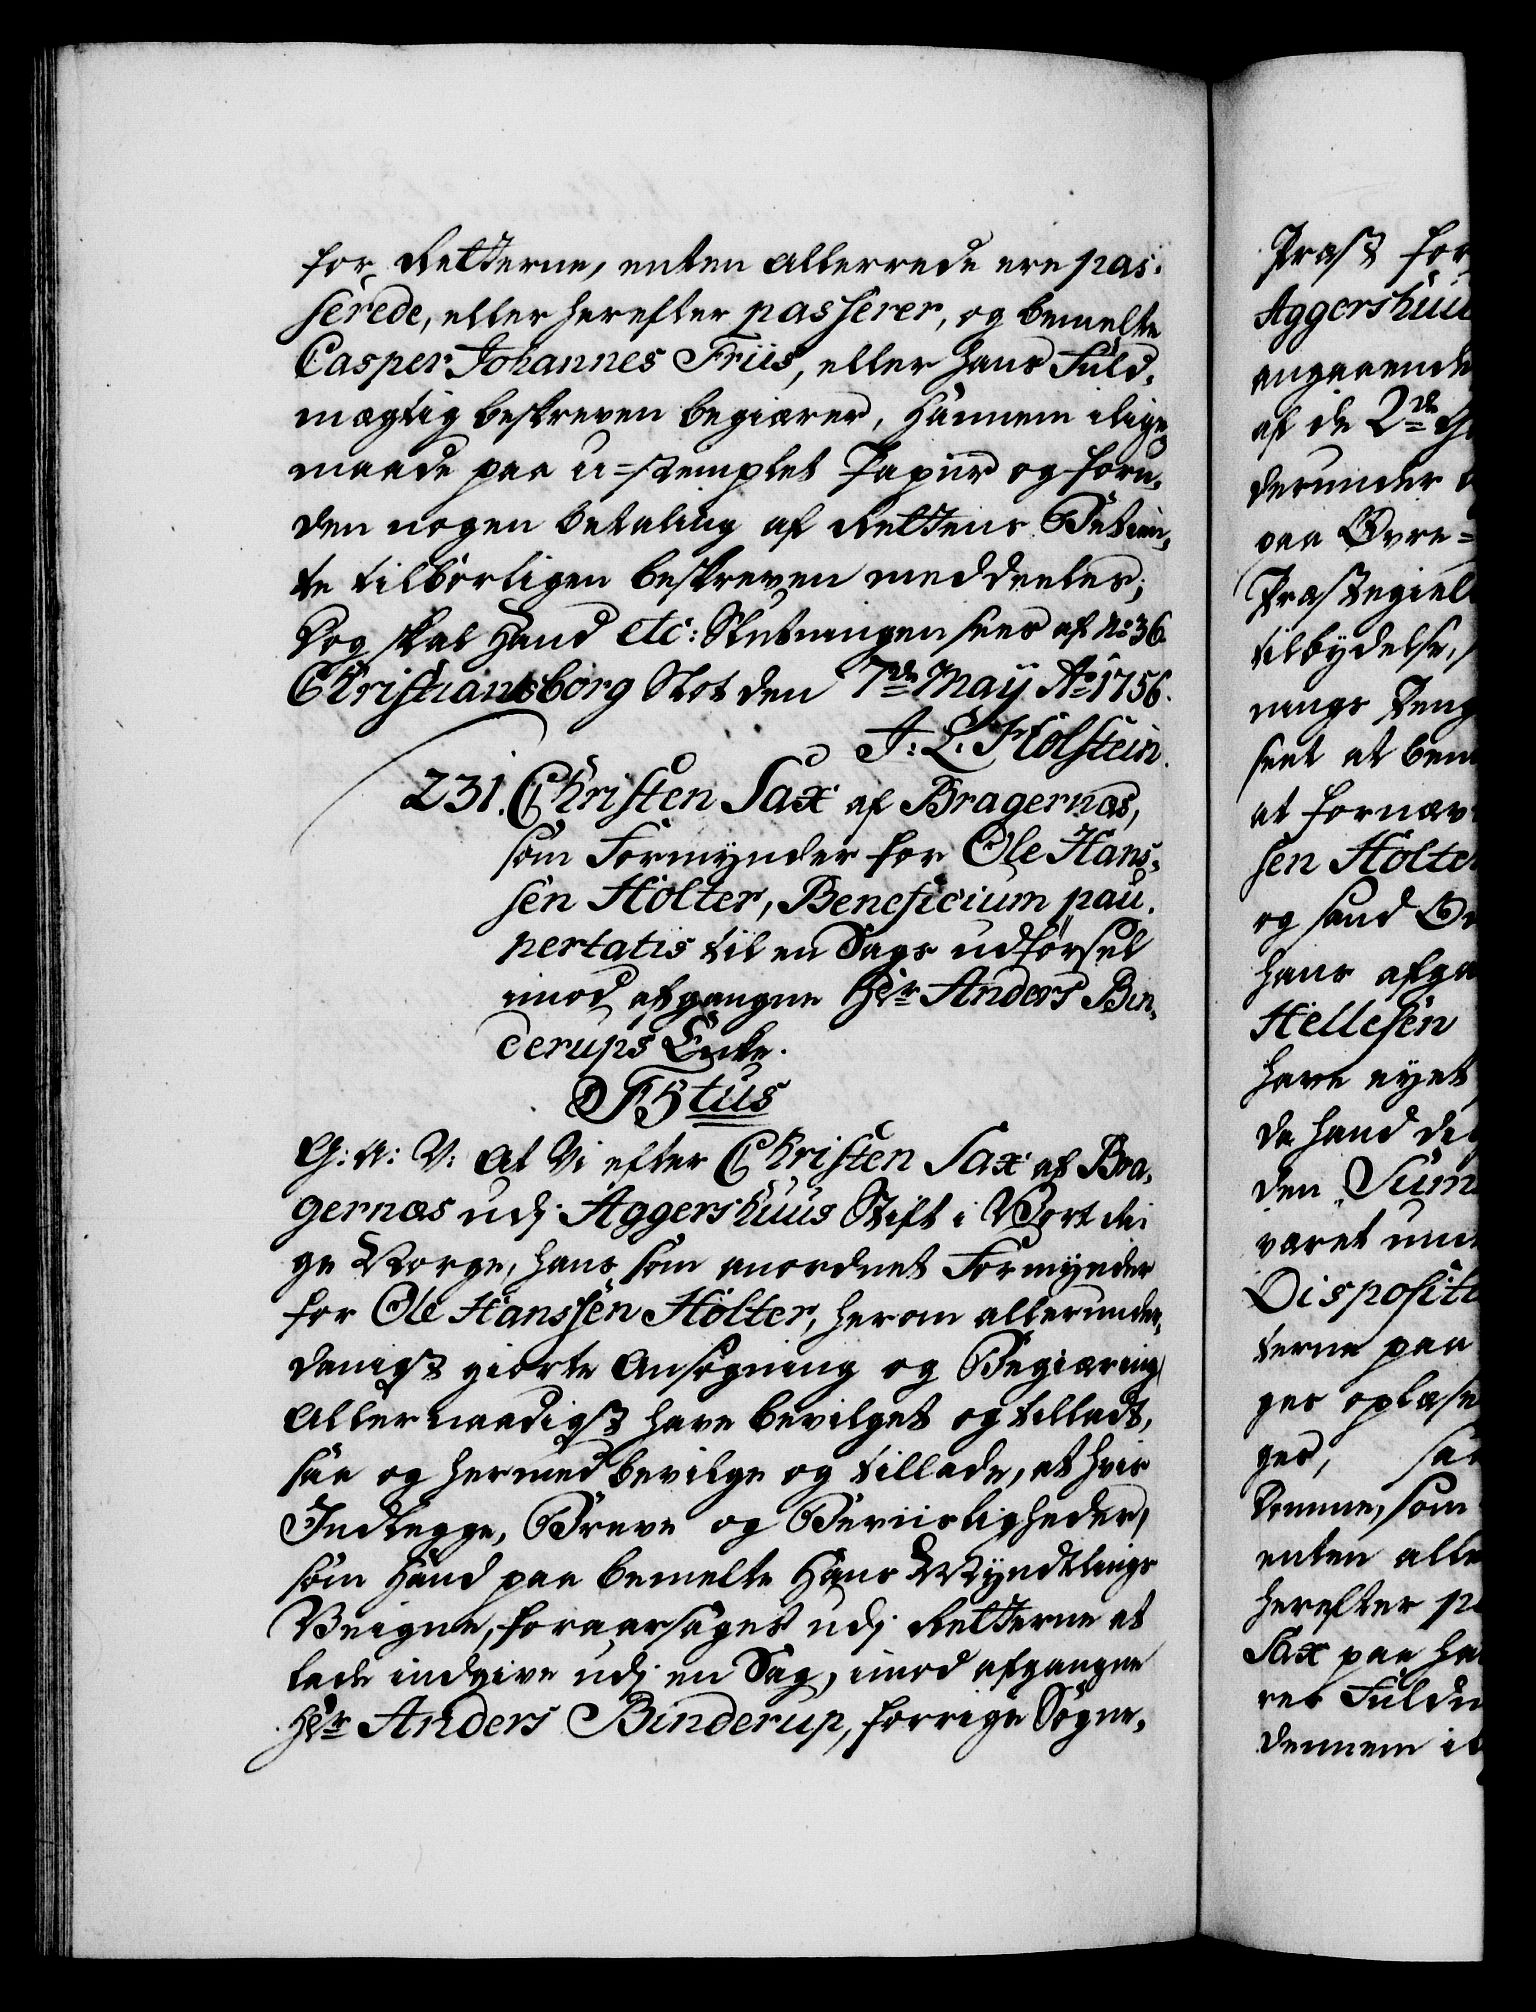 for Retterne, enten allerrede ere pas-
serede, eller herefter passerer, og bemelte
Casper Johannes Friis, eller hans Fuld-
mægtig beskreven begiærer, hannem i lige
maade paa u=stemplet Papiir og foru-
den nogen betaling af Rettens Betien-
te tilbørligen beskreven meddeeles;
Dog skal Hand etc: Slutningen sees af No 36.
Christiansborg Slot den 7de May Ao 1756.
J: L: Holstein.
231. Christen Sax af Bragernæs,
som Formynder for Ole Hans-
sen Holter, Beneficium pau-
pertatis til en Sags udførsel
imod afgangne Hr Anders Bin-
derups Enke.
F5tus
G: A: V: At Vi efter Christen Sax af Bra-
gernæs udj Aggershuus Stift i Vort Rei
ge Norge, hans som anordnet Formynder
for Ole Hanssen Holter, herom allerunder-
danigst giorte Ansøgning og Begiæring
Allernaadigst have bevilget og tilladt,
saa og hermed bevilge og tillade, at hvis
Indlegge, Breve og Beviisligheder,
som Hand paa bemelte Hans Myndtlings
Veigne, foraarsages udj Retterne at
lade indgive udj en Sag, imod afgangne
Hr Anders Binderup, forrige Sogne-
Præst for
Aggershuu
angaaende
af de 2de
derunder
paa Øvre=
Præstegiel
tilbydelse,
nings Peng
seet at bem
at fornæv
sen Holte
og sand
hans afga
Hellesen
have eyet
da hand
den Sum
været
Disposit
terne paa
ges oplæse
ges, saa
Domme, som
enten alle
herefter p
Sax paa ha
res Fuldm
dennem i